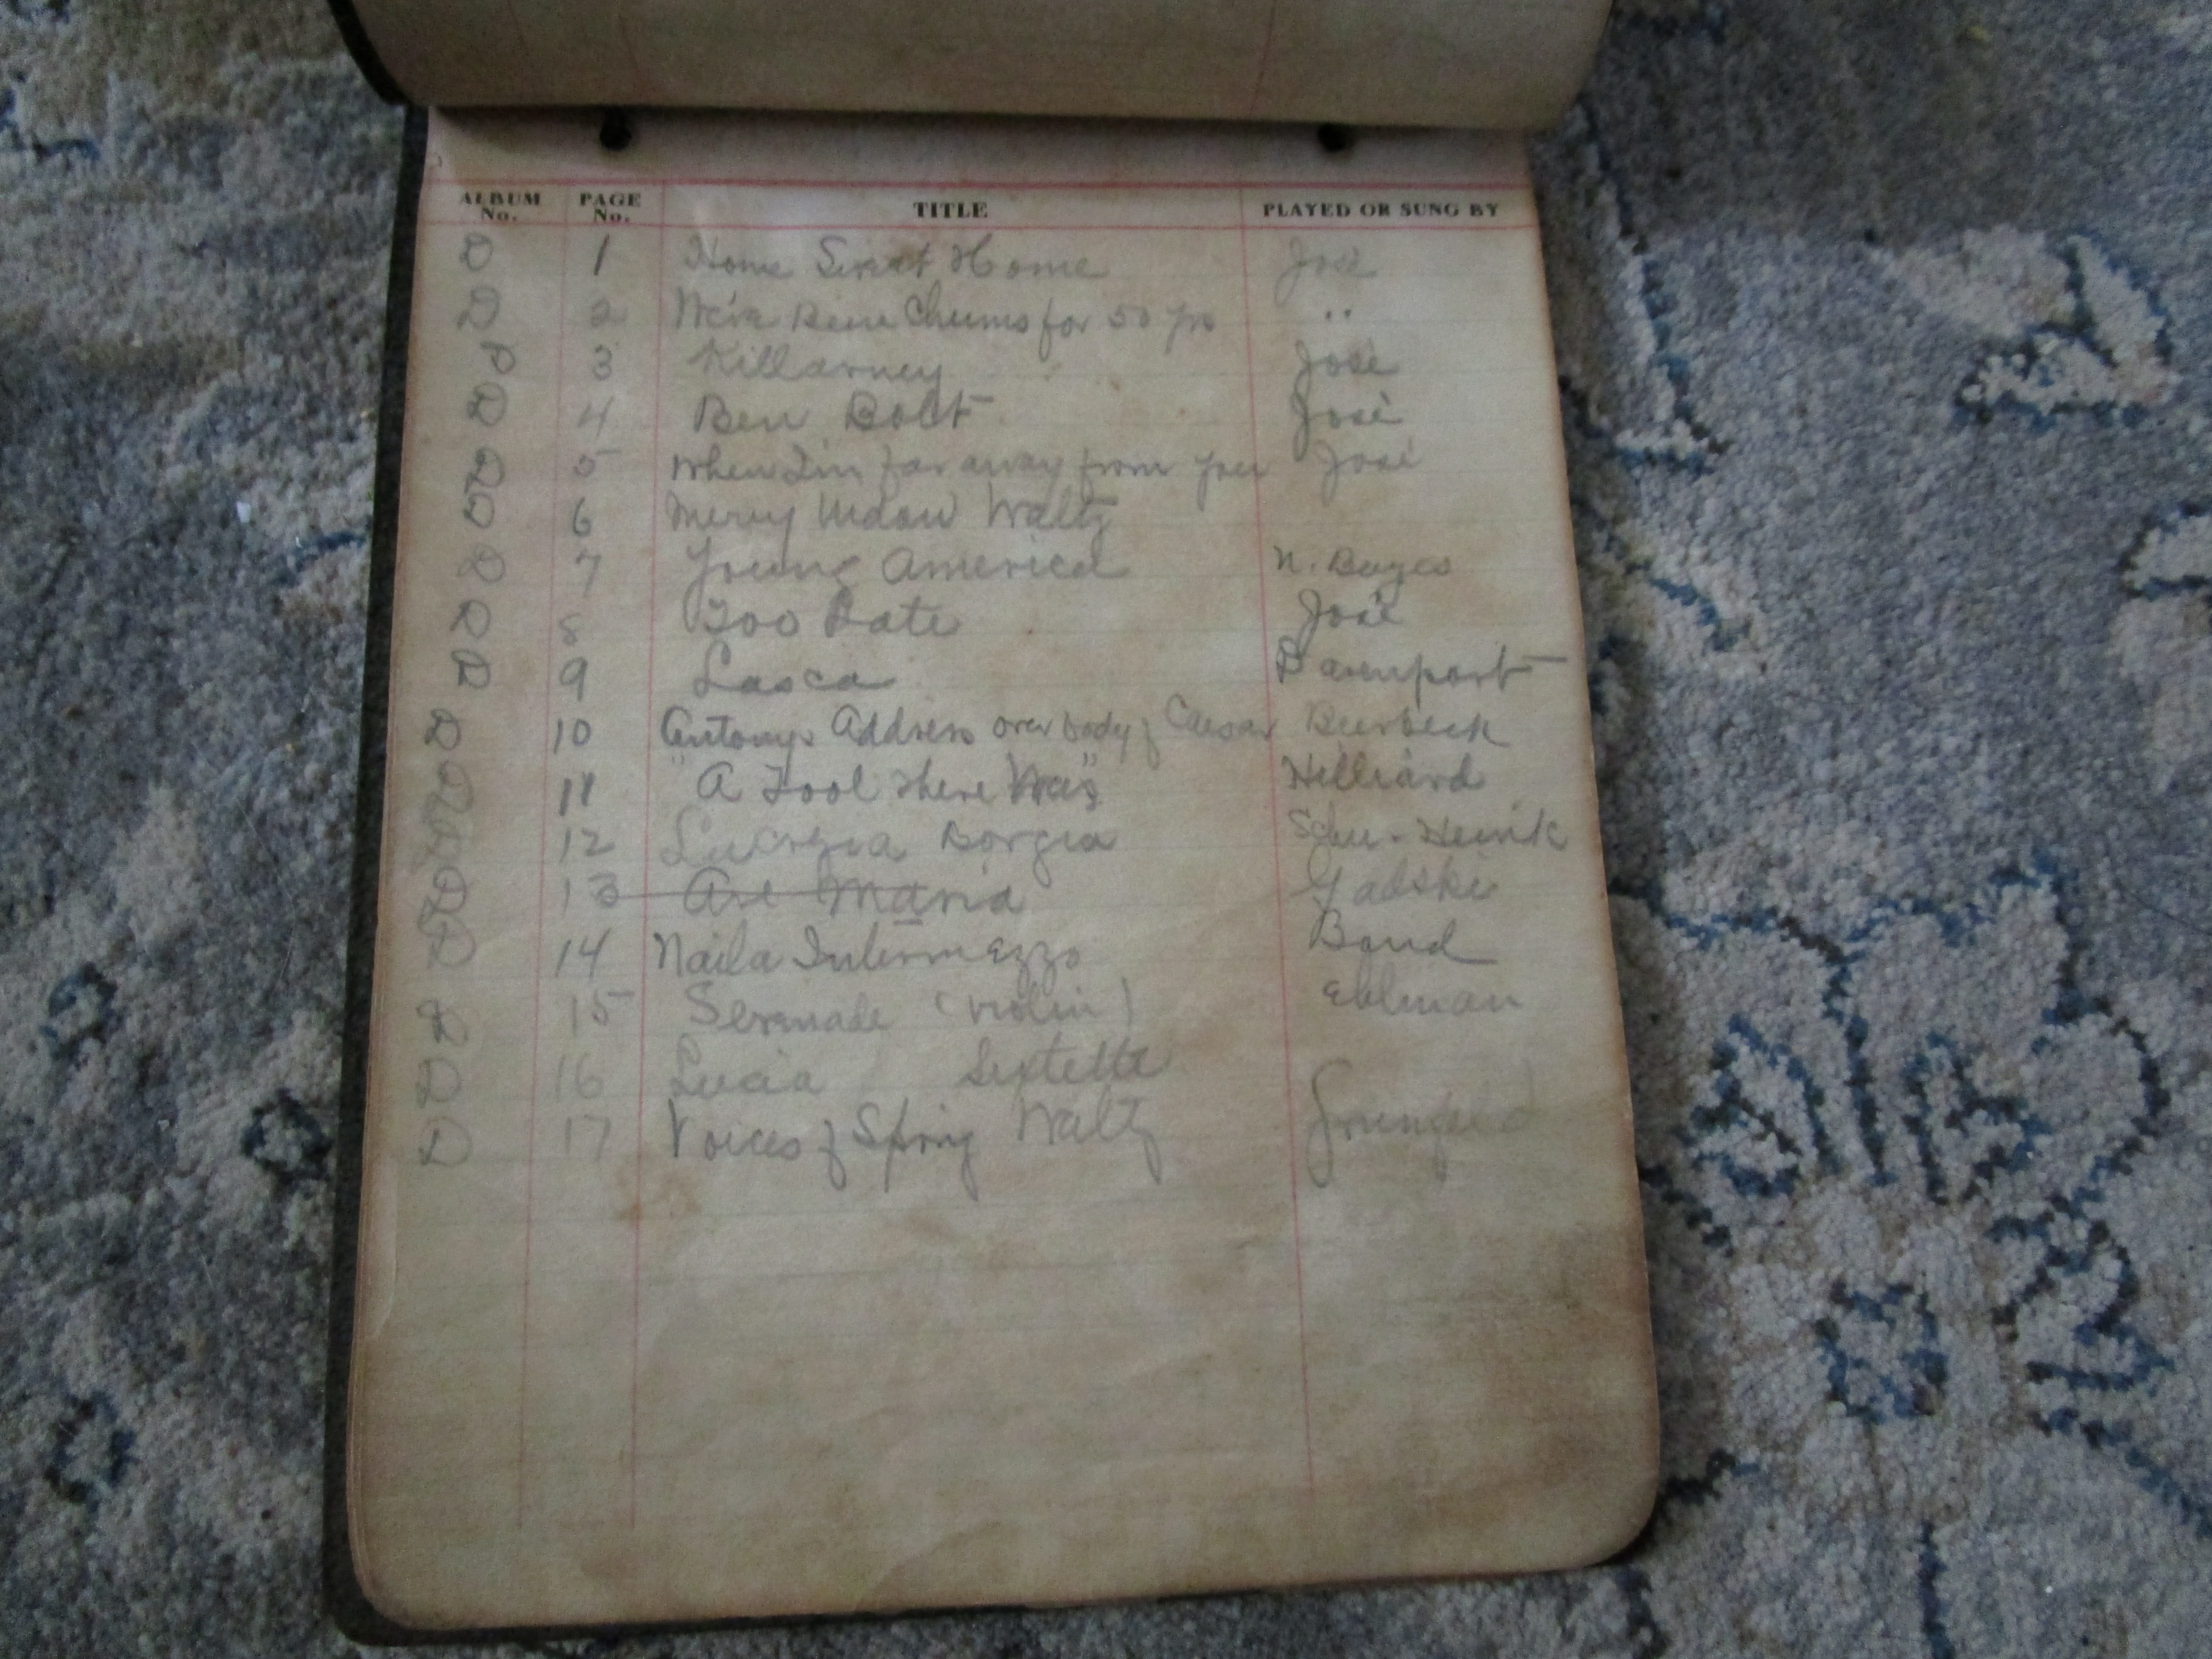 ALBUM No. PAGE No. TITLE PLAYED OR SUNG BY
D 1 Home Sweet Home José
D 2 We've Been Chums for 50 yrs "
D 3 Killarney José
D 4 Ben Bolt José
D 5 When I'm far away from you José
D 6 Merry Widow Waltz
D 7 Young America N. Bayes
D 8 Too Late José
D 9 Lasca Davenport
D 10 Antonys Address over body of Caesar Burbeck
D 11 "A Fool There Was" Hilliard
D 12 Lucrezia Borgia Schu-Heink
D 13 Ave Maria Gadski
D 14 Naila Intermezzo Band
D 15 Serenade (violin) Ellman
D 16 Lucia Sextette
D 17 Voices of Spring Waltz Grunfeld